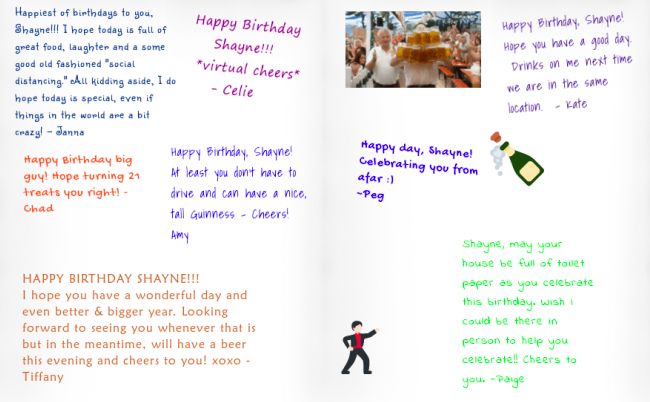 Happiest of birthdays to you,
Shayne!!! I hope today is full of
great food, laughter and a some
good old fashioned "social
distancing." All kidding aside, I do
hope today is special, even if
things in the world are a bit
crazy! - Janna
Happy Birthday
Shayne!!!
*virtual cheers*
- Celie
Happy Birthday big
guy! Hope turning 21
treats you right! -
Chad
Happy Birthday, Shayne!
At least you dont have to
drive and can have a nice,
tall Guinness - Cheers!
Amy
HAPPY BIRTHDAY SHAYNE!!!
I hope you have a wonderful day and
even better & bigger year. Looking
forward to seeing you whenever that is
but in the meantime, will have a beer
this evening and cheers to you! xoxo -
Tiffany
Happy Birthday, Shayne!
Hope you have a good day.
Drinks on me next time
we are in the same
location. - Kate
Happy day, Shayne!
Celebrating you from
afar :)
~Peg
Shayne, may your
house be full of toilet
paper as you celebrate
this birthday. Wish I
could be there in
person to help you
celebrate!! Cheers to
you. -Paige